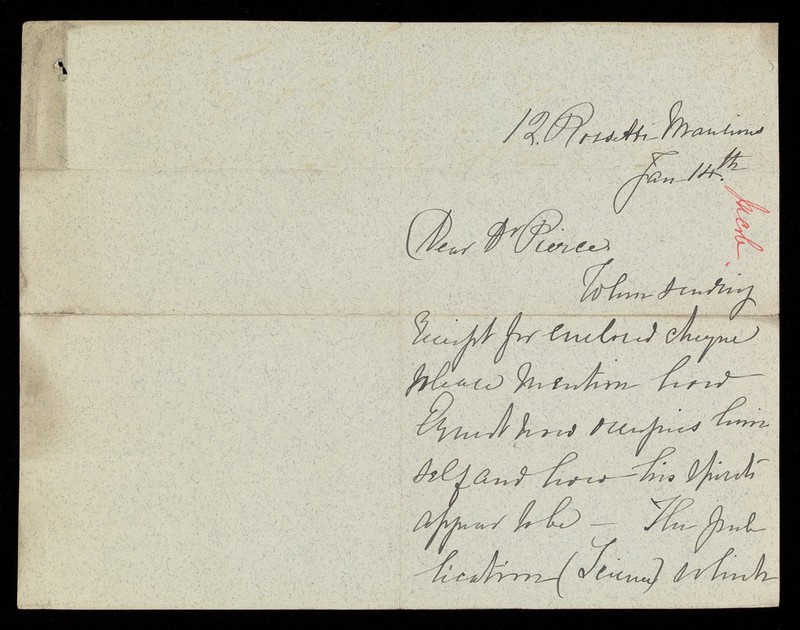 12. Rossetti Mansions
Jan 14th.
Jacob
Dear Dr Pierce.
When sending
receipt for enclosed cheque
please mention how
Ernest now occupies him
self and how his spirits
appear to be — The pub
lication (Science) which